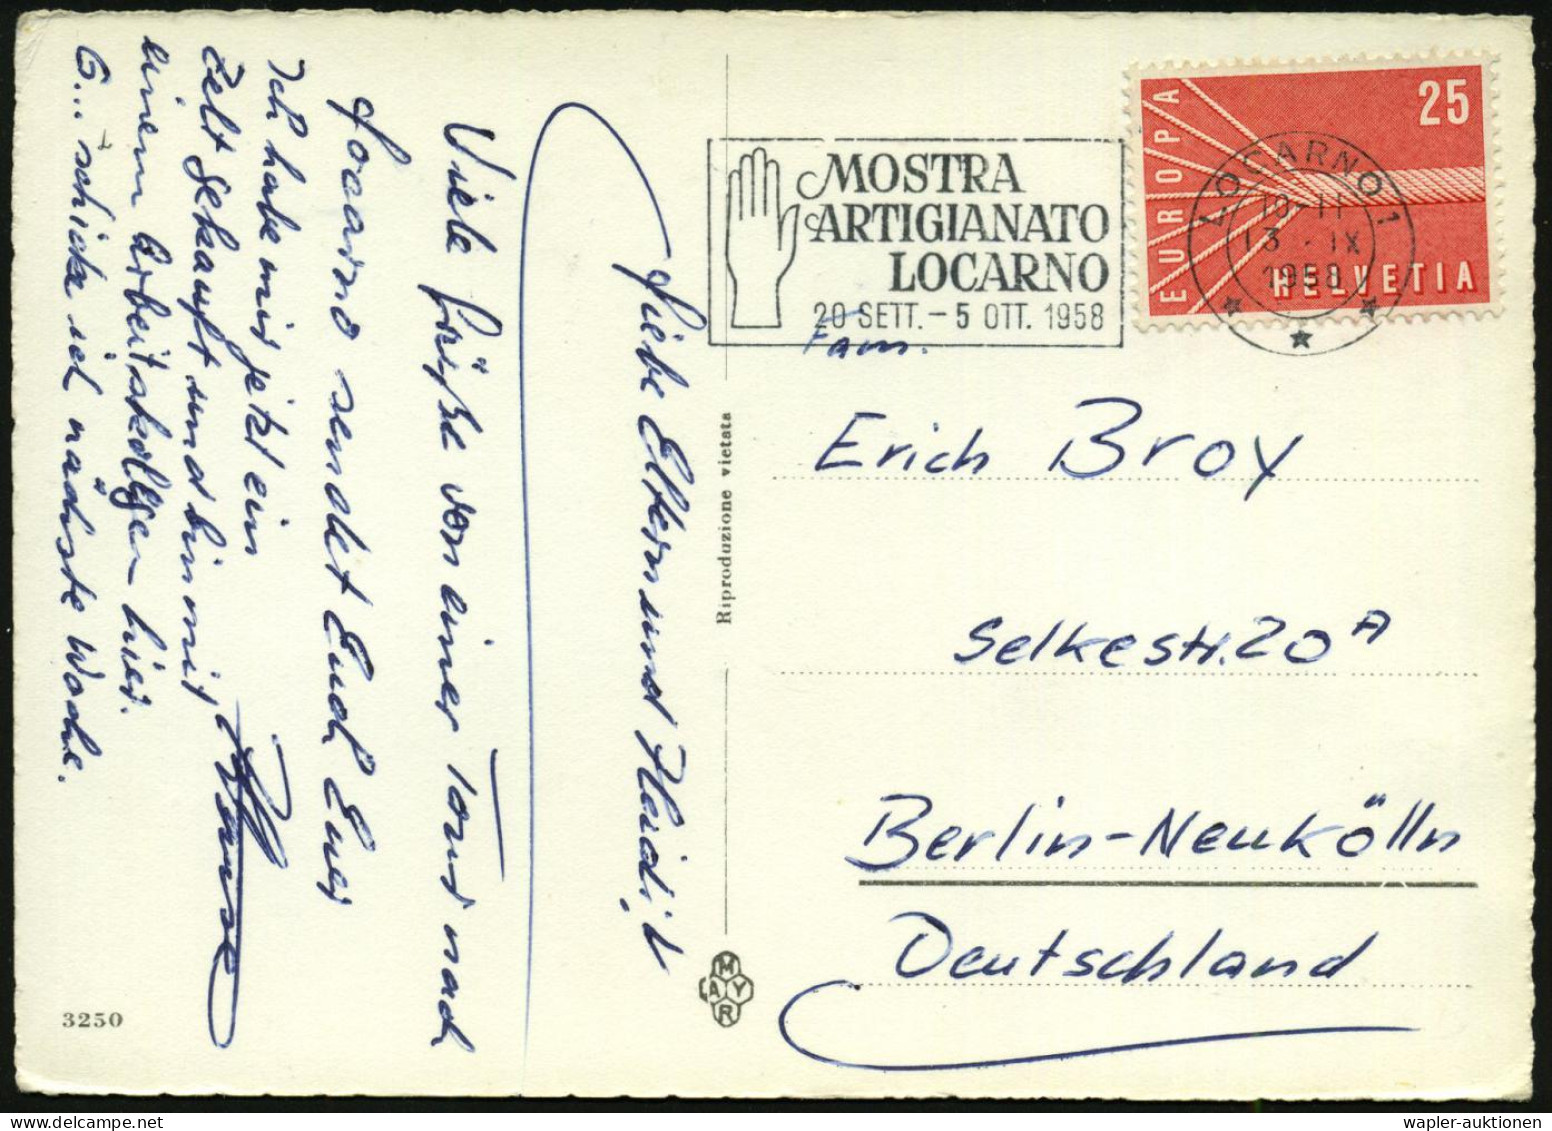 Liebe Eltern und Heidi!
Viele Grüße von einer Tour nach
Locarno sendet Euch Euer
Ich habe mir jetzt ein
Zelt gekauft und bin mit
einem Arbeitskollegen hier.
G... schicke ich nächste Woche.
3250
Riproduzione vietata
MAYR
MOSTRA
ARTIGIANATO
LOCARNO
20 SETT. – 5 OTT. 1958
EUROPA
25
HELVETIA
LOCARNO 1
13 · IX
1958
Fam.
Erich Broy
Selkestr. 20 A
Berlin-Neukölln
Deutschland
wapler-auktionen